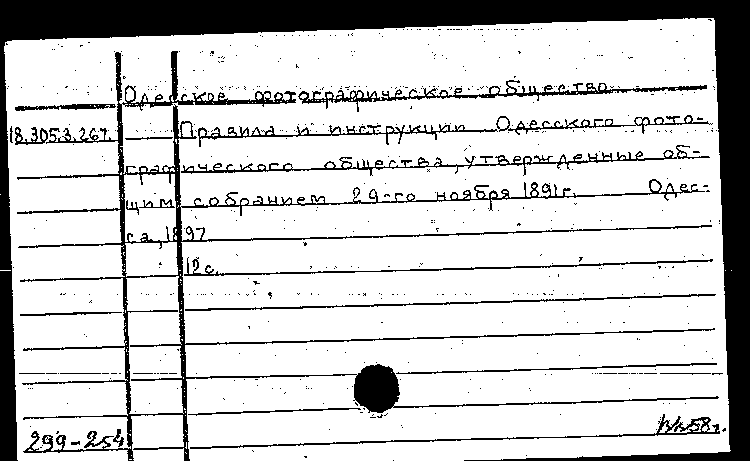 Одесское фотографическое общество.
18.305.3.267. Правила и инструкции Одесского фото-
графического общества, утвержденные об-
щим собранием 29-го ноября 1891г. Одес-
са, 1897
12с.
299-254 58г.